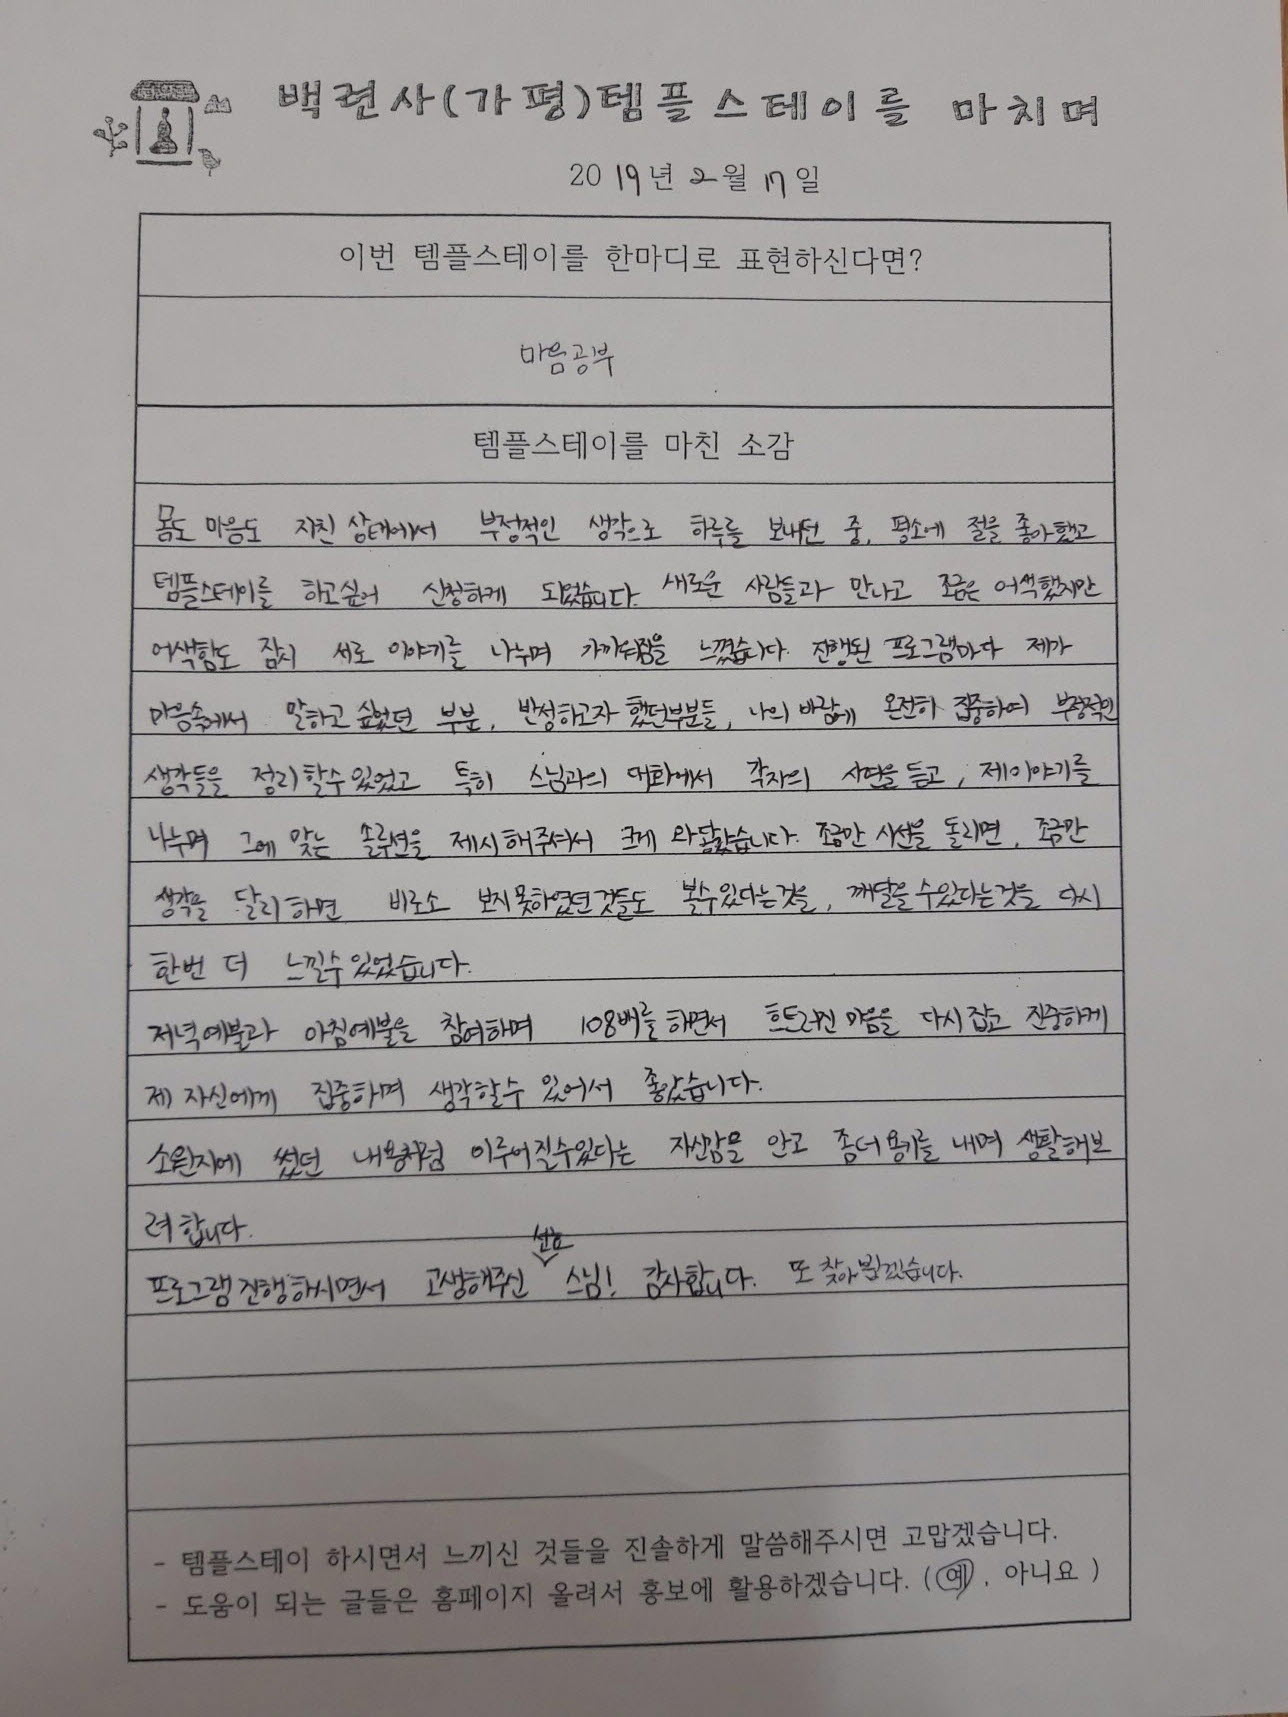 백련사(가평)템플스테이를 마치며
2019년 2월 17일
이번 템플스테이를 한마디로 표현하신다면?
마음공부
템플스테이를 마친 소감
몸도 마음도 지친 상태에서 부정적인 생각으로 하루를 보내던 중, 평소에 절을 좋아했고
템플스테이를 하고싶어 신청하게 되었습니다. 새로운 사람들과 만나고 조금은 어색했지만
어색함도 잠시 서로 이야기를 나누며 가까워짐을 느꼈습니다. 진행된 프로그램마다 제가
마음속에서 말하고 싶었던 부분, 반성하고자 했던부분들, 나의 바람에 온전히 집중하여 부정적인
생각들을 정리할수있었고 특히 스님과의 대화에서 각자의 사연을 듣고, 제이야기를
나누며 그에 맞는 솔루션을 제시해주셔서 크게 와닿았습니다. 조금만 시선을 돌리면, 조금만
생각을 달리하면 비로소 보지못하였던것들도 볼수있다는것을, 깨달을수있다는것을 다시
한번 더 느낄수있었습니다.
저녁예불과 아침예불을 참여하며 108배를하면서 흐트러진 마음을 다시잡고 진중하게
제 자신에게 집중하며 생각할수 있어서 좋았습니다.
소원지에 썼던 내용처럼 이루어질수있다는 자신감을 안고 좀더용기를 내며 생활해보
려합니다.
선효
프로그램진행하시면서 고생해주신 스님! 감사합니다. 또 찾아뵙겠습니다.
- 템플스테이 하시면서 느끼신 것들을 진솔하게 말씀해주시면 고맙겠습니다.
- 도움이 되는 글들은 홈페이지 올려서 홍보에 활용하겠습니다. (예, 아니요)